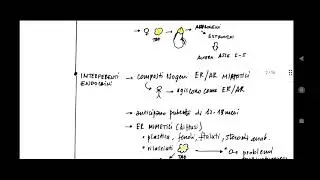 → ♀ TAB → → ANDROGENI
ESTROGENI
AUTRA ASSE E-S
INTERFERENTI
ENDOCRINI
→ composti esogeni ER/AR MIMETICI
↳ agiscono come ER/AR
→ anticipano pubertà di 12-18 mesi
→ ER MIMETICI (diffusi)
• plastica, fenoli, ftalati, steroidi amb.
• rilasciati TAB → problemi